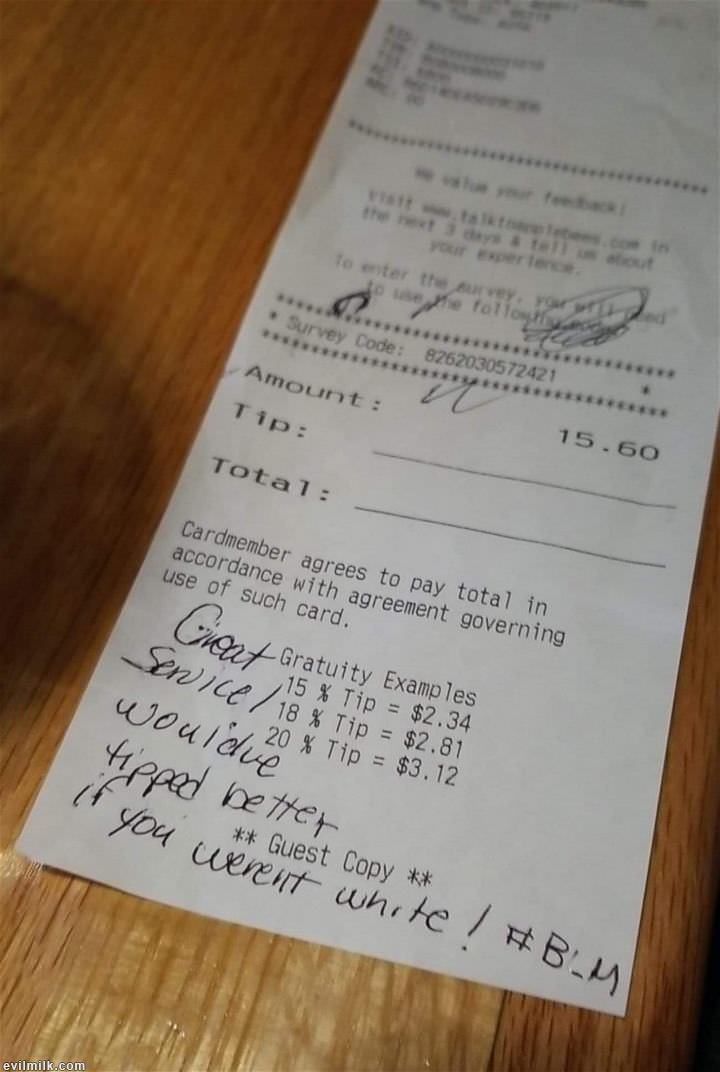 We value your feedback!
Visit www.talktoapplebees.com in
the next 3 days & tell us about
your experience.
To enter the survey, you will need
to use the following
* Survey Code: 8262030572421 *
Amount: 15.60
Tip:
Total:
Cardmember agrees to pay total in
accordance with agreement governing
use of such card.
Gratuity Examples
15 % Tip = $2.34
18 % Tip = $2.81
20 % Tip = $3.12
** Guest Copy **
Great
Service!
would've
tipped better
if you weren't white! #BLM
evilmilk.com